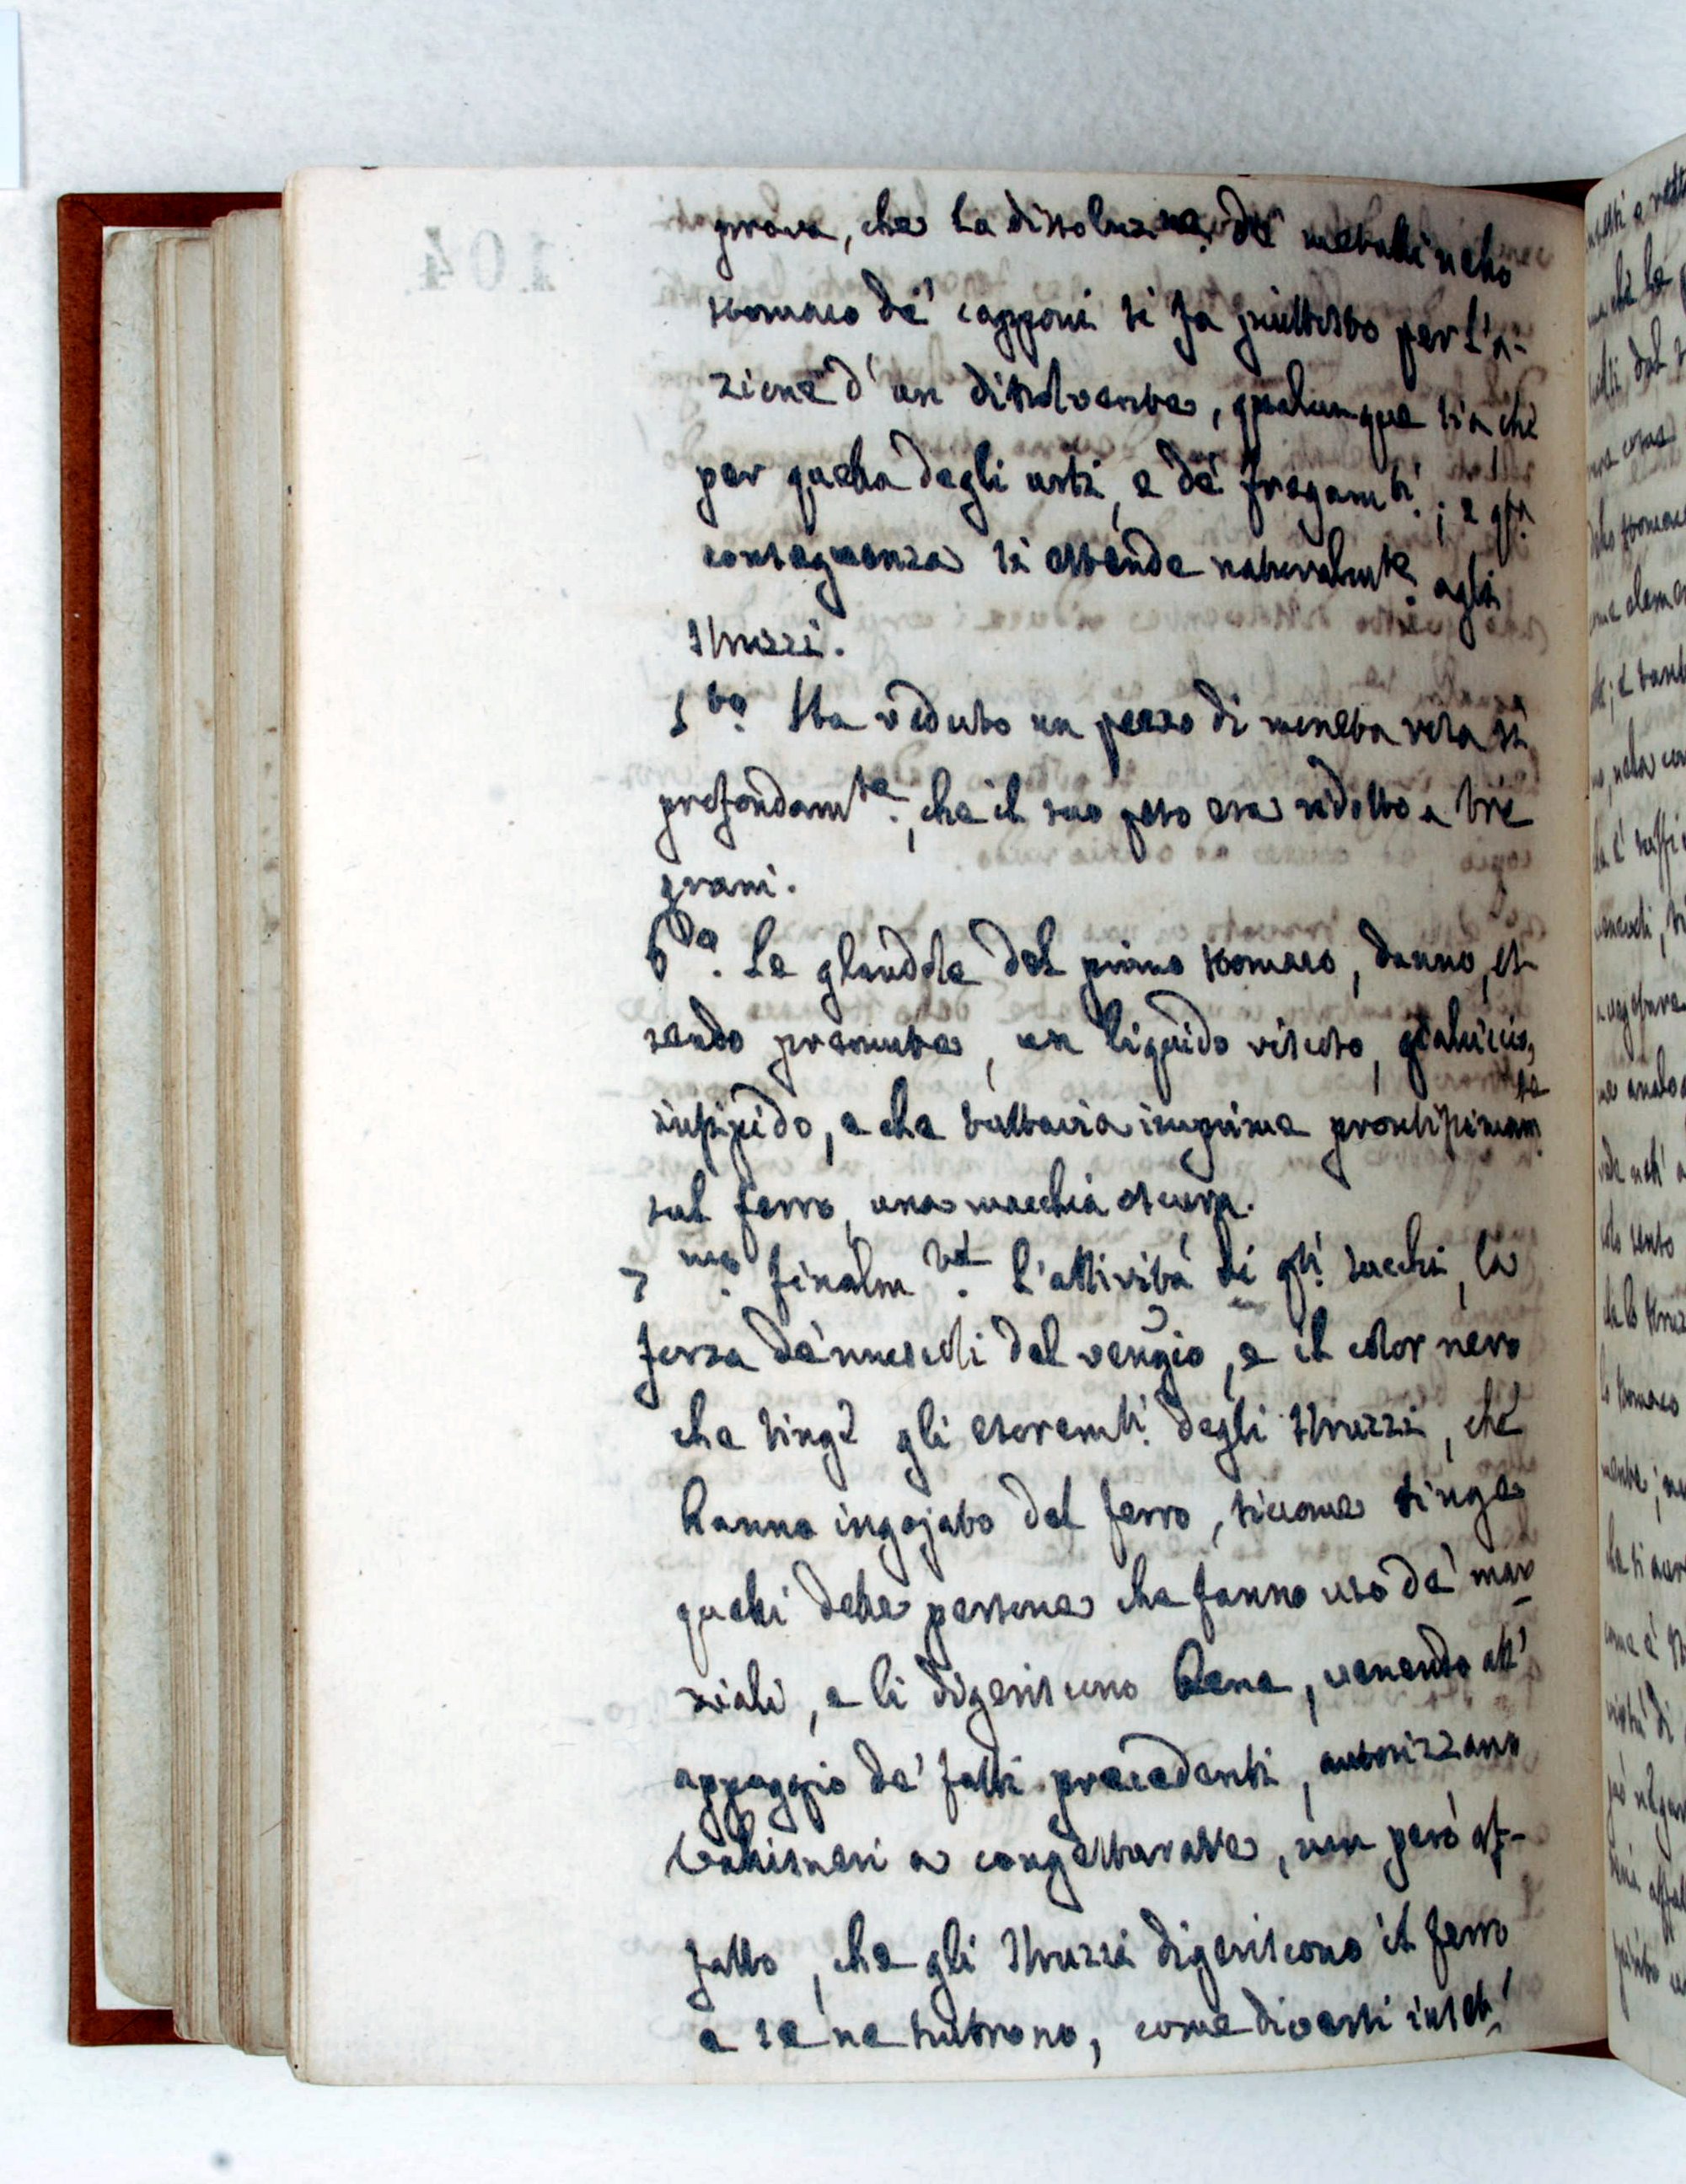 prova, che la dissoluzne. de' metalli nello
stomaco de' capponi si fa piuttosto per l'a-
zione d'un dissolvente, qualunque sia che
per quella degli urti, e de' fregamti.; e qta.
conseguenza si estende naturalmte. agli
struzzi.
5ta. Ha veduto un pezzo di moneta rosa sì
profondamte., che il suo peso era ridotto a tre
grani.
6ta. Le glandole del primo stomaco, danno, es-
sendo premute, un liquido viscoso, gialliccio,
insipido, e che tuttavia imprime prontissimamte.
sul ferro, una macchia oscura.
7ma. finalmte. L'attività di qti. succhi, la
forza de' muscoli del ventriglio, e il color nero
che tinge gli escremti. degli struzzi, che
hanno ingojato del ferro, siccome tinge
quelli delle persone che fanno uso de' mar-
ziali, e li digeriscono bene, venendo all'
appoggio de' fatti precedenti, autorizzano
Vallisneri a congetturare, non però af-
fatto, che gli struzzi digeriscono il ferro
e se ne nutrono, come diversi inset-